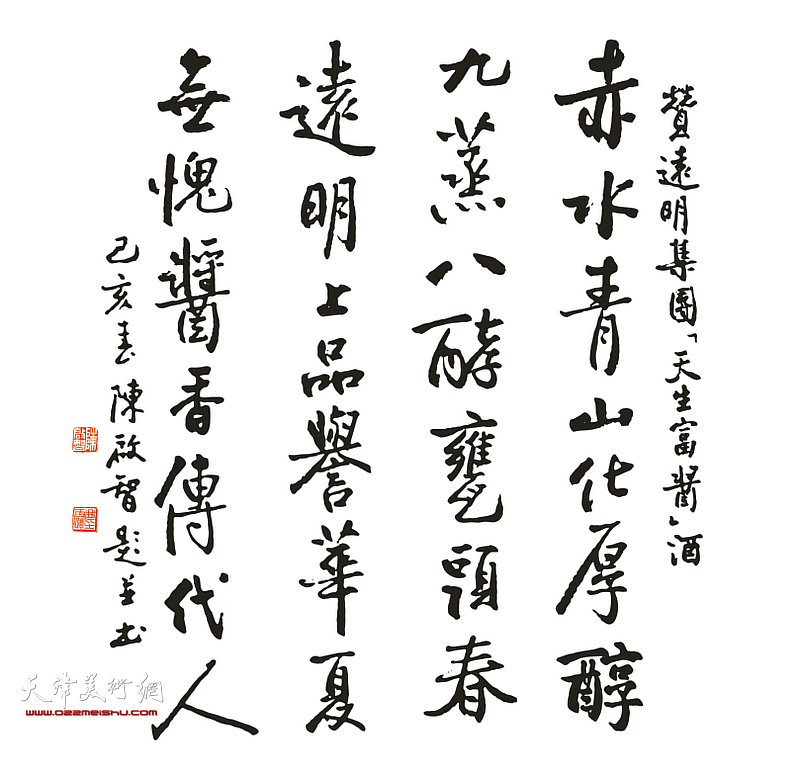 贊遠明集團「天生富醬」酒
赤水青山化厚醇
九蒸八酵甕頭春
遠明上品譽華夏
無愧醬香傳代人
己亥春陳啟智題並書
天津美術網
www.022meishu.com